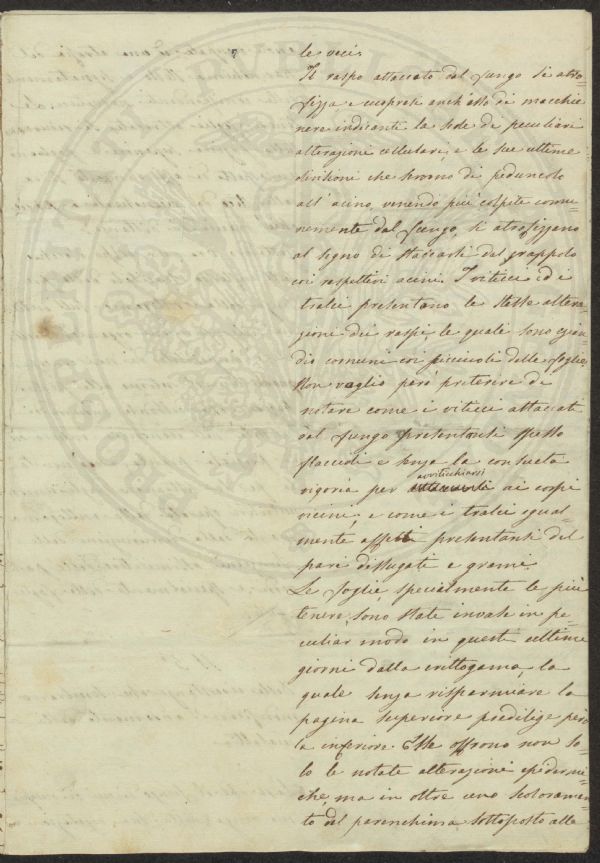 le veci.
Il raspo attaccato dal fungo si atro=
fizza e cuopresi anch'esso di macchie
nere indicanti la sede di peculiari
alterazioni cellulari, e le sue ultime
divisioni che servono di peduncolo
all'acino, venendo più colpite comu=
nemente dal fungo, si atrofizzano
al segno di staccarsi dal grappolo
coi respettivi acini. I viticci ed i
tralci presentano le stesse altera=
zione dei raspi, le quali sono ezian=
dio comuni coi picciuoli delle foglie.
Non voglio però preterire di
notare come i viticci attaccati
dal fungo presentansi spesso
flaccidi e senza la consueta
vigoria per avviticchiarsi ai corpi
vicini; e come i tralci egual=
mente affetti presentansi del
pari dissugati e grami.
Le foglie, specialmente le più
tenere, sono state invase in pe=
culiar modo in questi ultimi
giorni dalla crittogama, la
quale senza risparmiare la
pagina superiore predilige però
la inferiore. Esse offrono non so=
lo le notate alterazioni epidermi=
che, ma in oltre uno scoloramen=
to del parenchima sottoposto alle